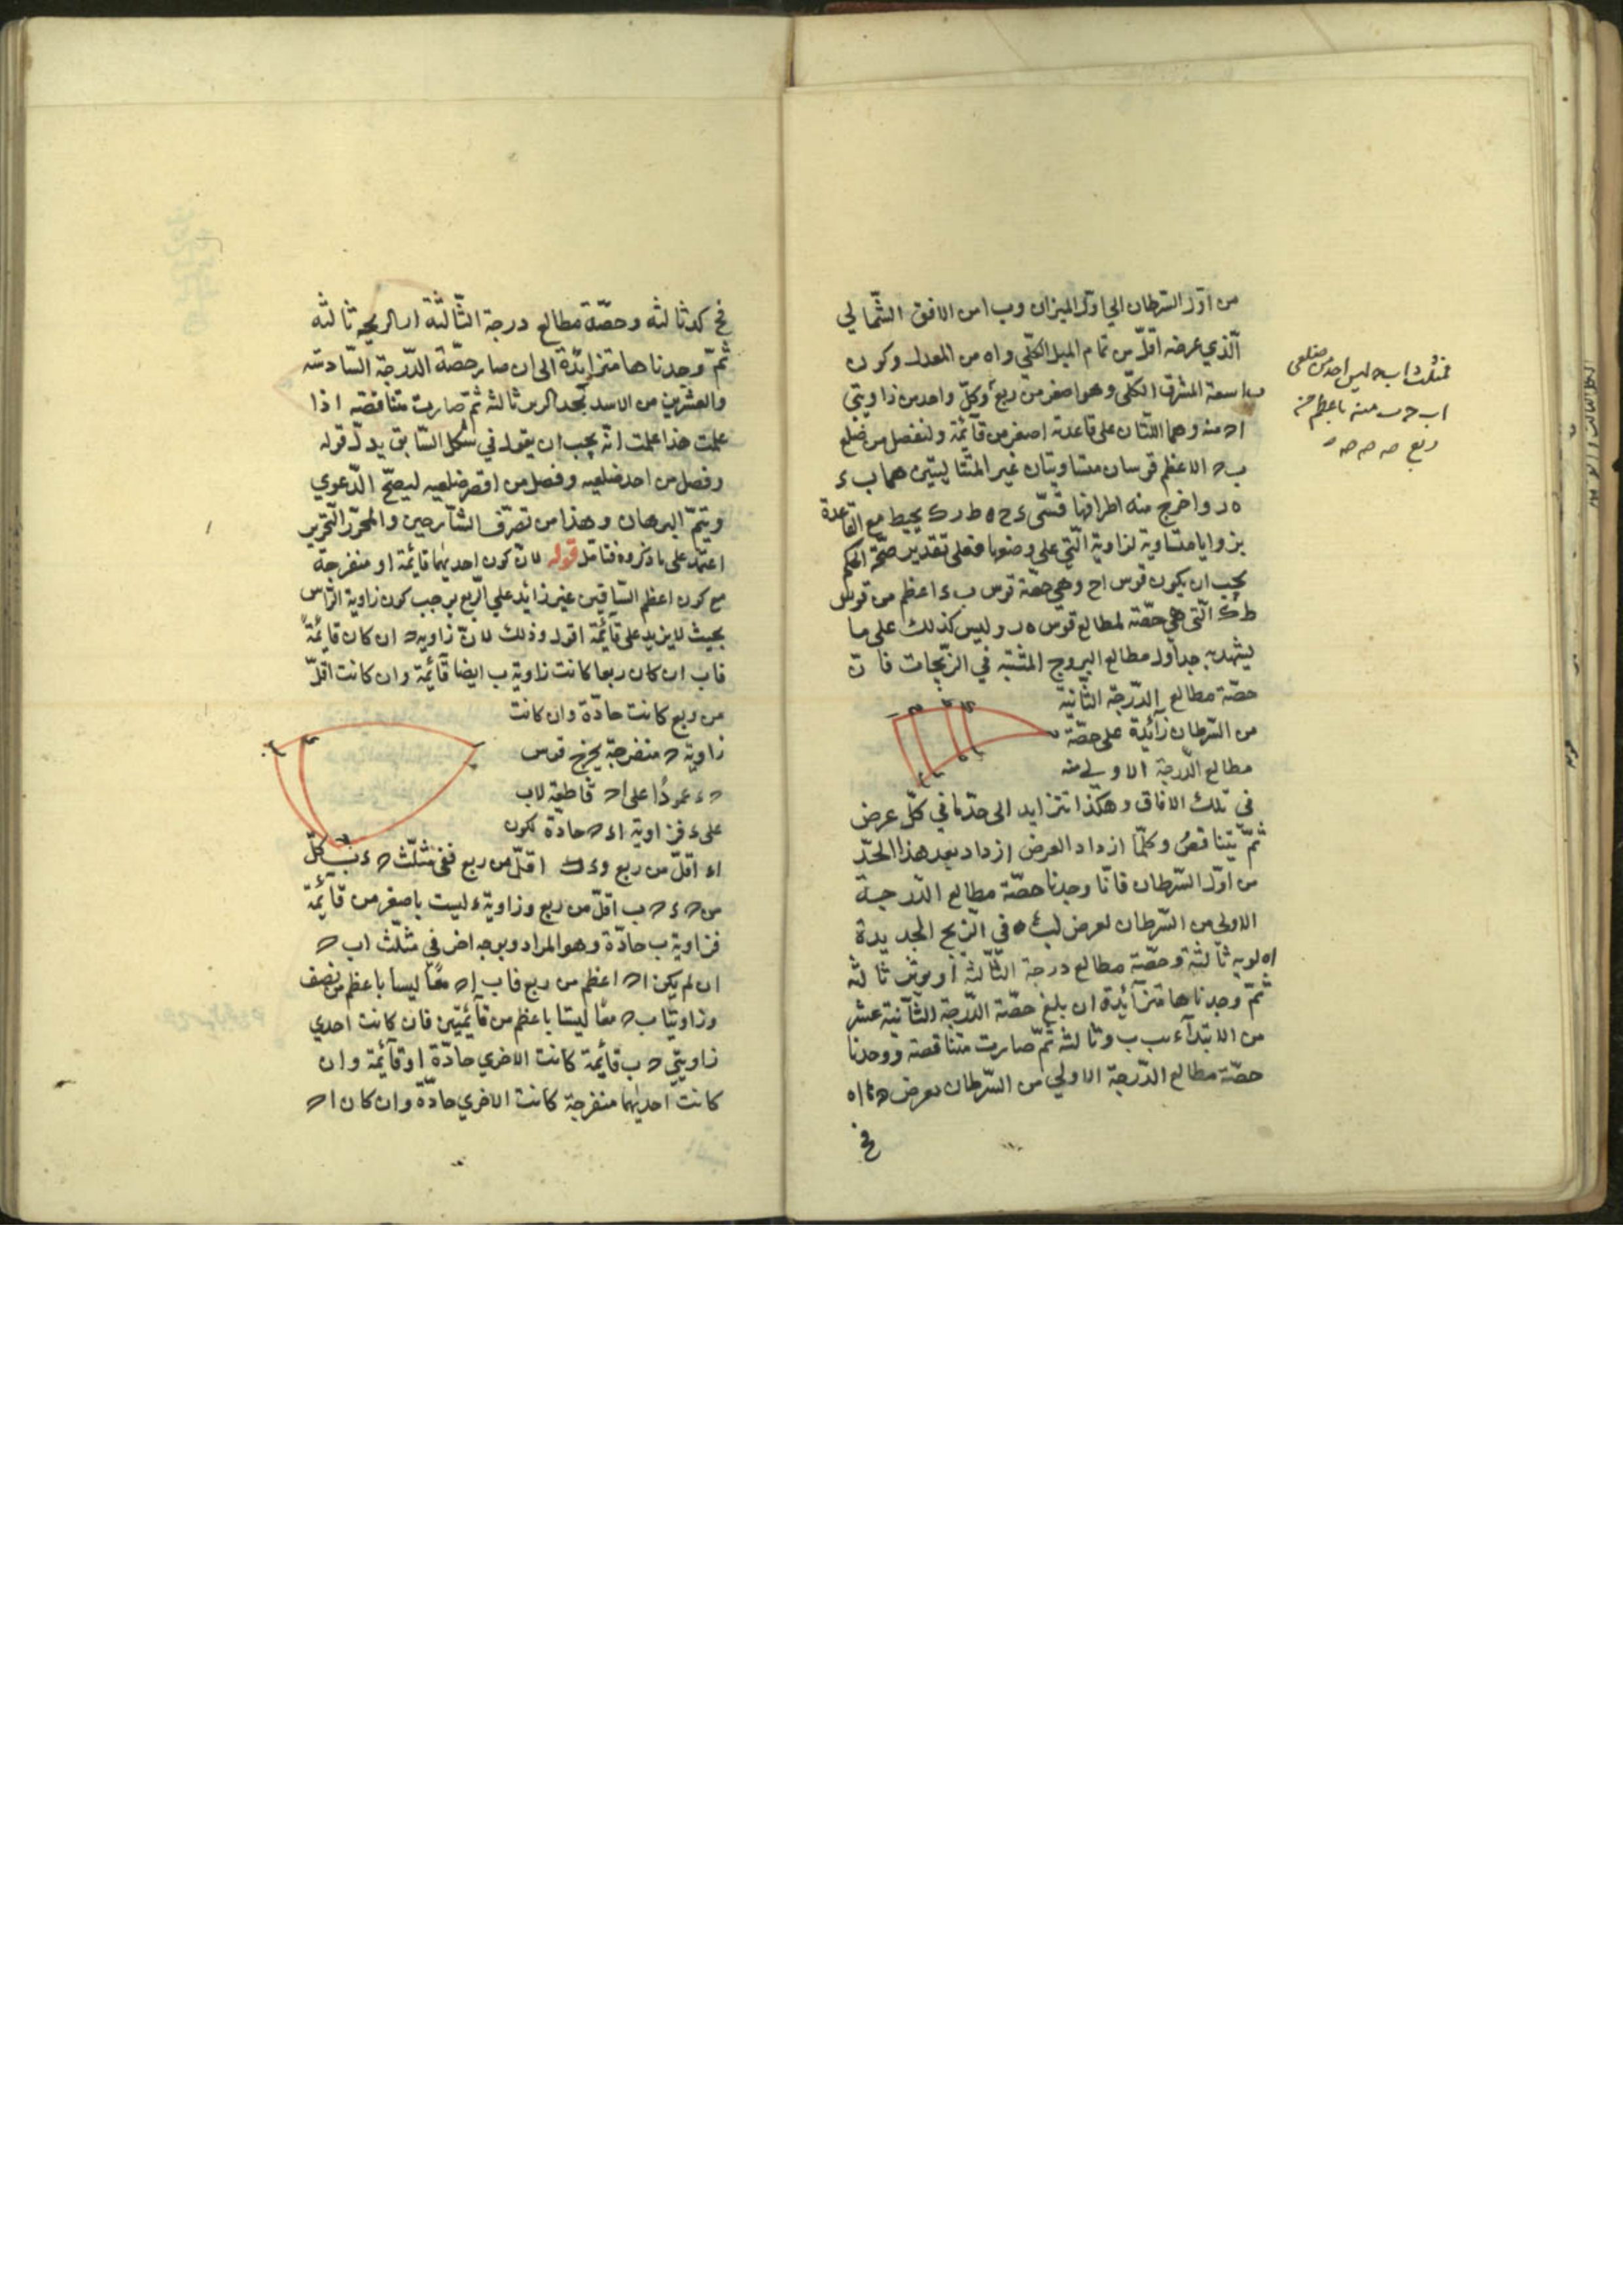 من اوّل السّرطان الي اوّل الميزان وب ا من الافق الشّمالي
الّذي عرضه اقلّ من تمام الميل الكلّي و اه من المعدل وكون
ب ا سعة المشرق الكلّي وهو اصغر من ربع وكلّ واحد من زاويتي
ا ح منه وهما اللّتان على قاعدته اصغر من قآئمة ولنفصل من ضلع
ب ح الاعظم قوسان متساويتان غير المتتاليتين هما ب ء
ه ر واخرج منه اطرافها قسّي ء ح ه ط ر ك يحيط مع القاعدة
بزوايا متساوية لزاوية ا الّتي على وضعها فعلى تقدير صحّة الحكم
يجب ان يكون قوس ا ح وهي حصّة قوس ب ء اعظم من قوس
ط ك الّتي هي حصّة لمطالع قوس ه ر وليس كذلك على ما
يشهد به جداول مطالع البروج المثبتة في الزّيجات فانّ
حصّة مطالع الدّرجة الثّانية
من السّرطان زآئدة على حصّة
مطالع الدّرجة الاولي منه
في تلك الافاق وهكذا تتزايد الى حدّ ما في كلّ عرض
ثمّ يتناقص وكلّما ازداد العرض ازداد بعد هذا الحدّ
من اوّل السّرطان فانّا وجدنا حصّة مطالع الدّرجة
الاولي من السّرطان لعرض في الزّيج الجديدة
ثالثة وحصّة مطالع درجة الثّالثة ثالثة
ثمّ وجدناها متزآئدة ان بلغ حصّة الدّرجة الثّآنية عشر
من الابتدآء ثالثه ثمّ صارت متناقصة ووجدنا
حصّة مطالع الدّرجة الاولي من السّرطان بعرض
فمثلث اب ح ليس احد من ضلعي
اب ح ب منه باعظم من
ربع صه صه صه
ثالثه وحصّة مطالع درجة الثّالثة ثالثه
ثمّ وجدناها متزايدة الى ان صار حصّة الدّرجة السّادسة
والعشرين من الاسد ثالثه ثمّ صارت متناقصه اذا
علمت هذا علمت انّه يجب ان يقول في شكل السّابق بدل قوله
وفصل من احد ضلعيه وفصل من اقصر ضلعيه ليصحّ الدّعوي
ويتمّ البرهان وهذا من تصرّف الشّآرحين والمحرّر التّحرير
اعتمد على ما ذكروه فتامل قوله لانّ كون احديهما قائمة او منفرجة
مع كون اعظم السّاقين غير زائد على الرّبع يوجب كون زاوية الرّاس
بحيث لا يزيد على قآئمة اقول وذلك لانّ زاوية ح ان كان قآئمةً
فاب ان كان ربعا كانت زاوية ب ايضا قآئمة وان كانت اقلّ
من ربع كانت حادّة وان كانت
زاوية ح منفرجة يخرج قوس
ح ء عموداً على ا ح قاطعة لاب
على ء فزاوية ا ء ح حادة لكون
ا ء اقلّ من ربع و ء ب اقلّ من ربع ففي مثلّث ح ء ب كلّ
من ح ء ح ب اقلّ من ربع وزاوية ء ليست باصغر من قآئمة
فزاوية ب حادّة وهو المراد وبوجه اخر في مثلّث اب ح
ان لم يكن ا ح اعظم من ربع فاب ا ح معًا ليسا باعظم من نصف
وزاويتا ب ح معًا ليستا باعظم من قآئمتين فان كانت احدي
زاويتي ح ب قآئمة كانت الاخري حادّة او قآئمة وان
كانت احديهما منفرجة كانت الاخري حادّة وان كان ا ح